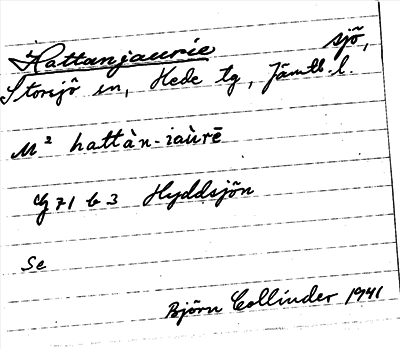 Hattanjaurie sjö,
Storsjö sn, Hede tg, Jämtl. l.
M² hattàn-iaùrē
G 71 b 3 Hyddsjön
Se
Björn Collinder 1941